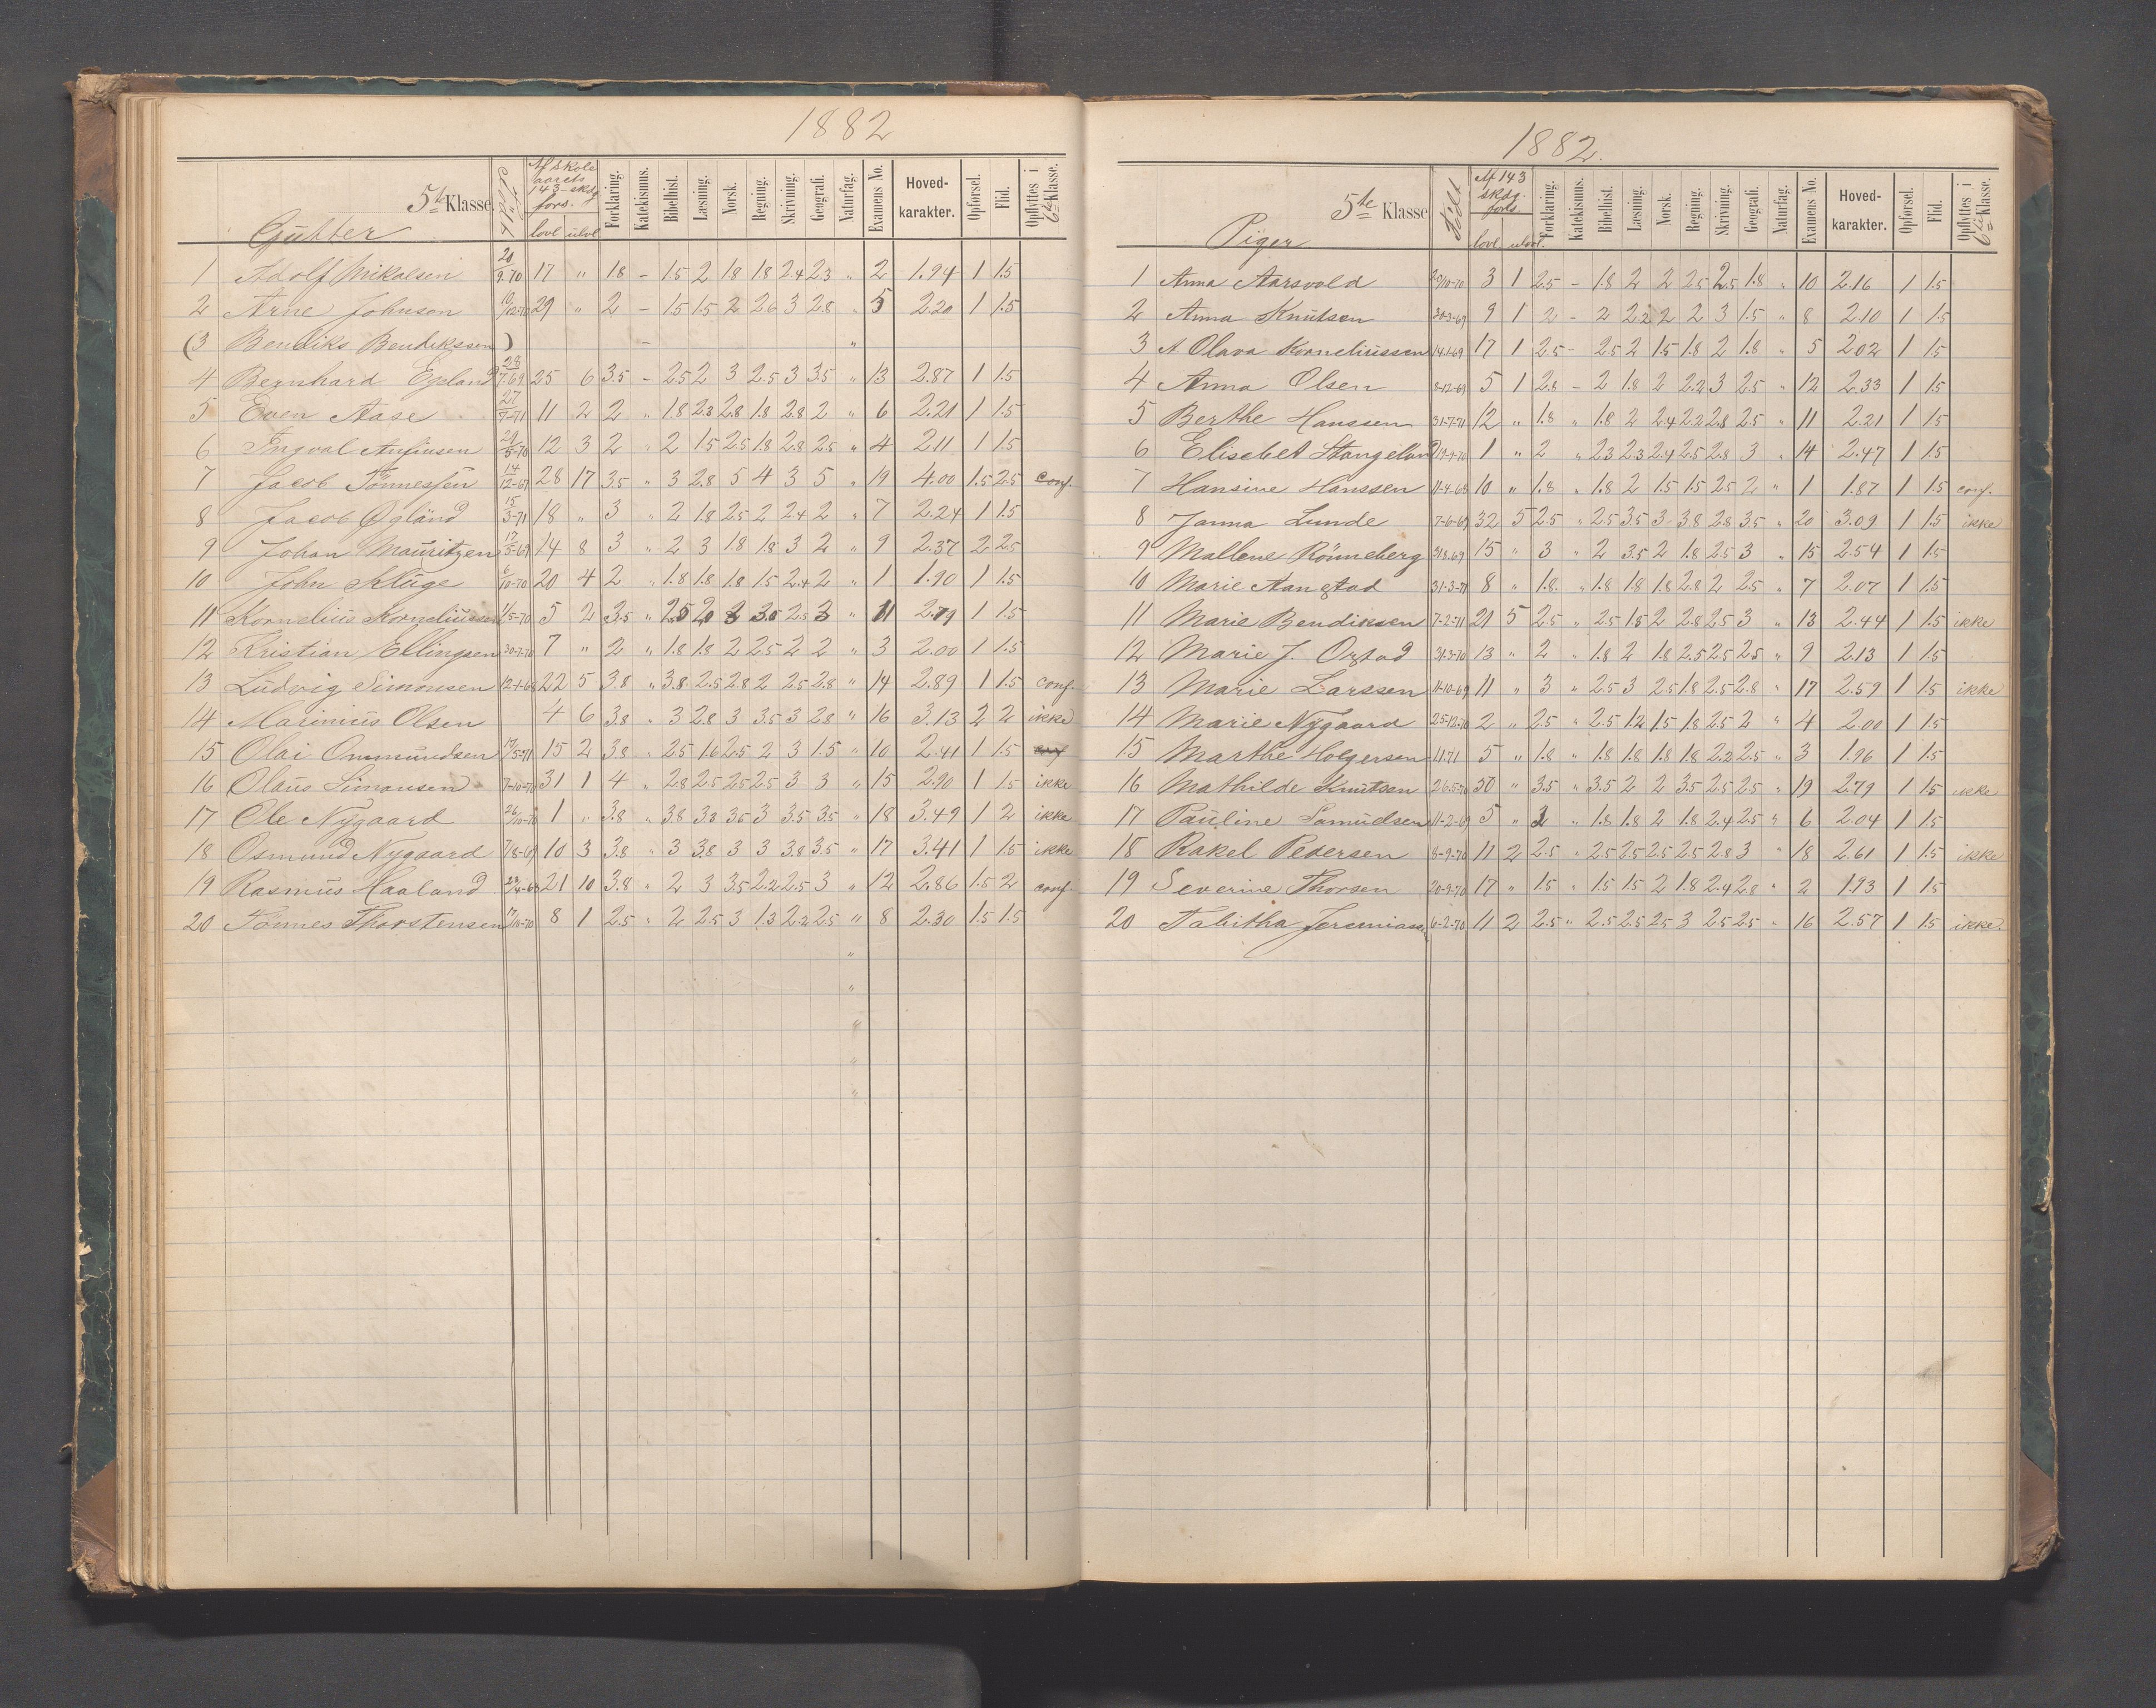 1882
5te Klasse.
Gutter
Født
Af skole aarets 143 skdg. fors.
lovl. ulovl.
Forklaring. Katekismus. Bibelhist. Læsning. Norsk. Regning. Skrivning. Geografi. Naturfag. Examens No. Hoved-karakter. Opførsel. Flid. Opflyttes i 6te Klasse.
1 Adolf Mikalsen 9.70 17 " 1.8 – 1.5 2 1.8 1.8 2.4 2.3 " 2 1.94 1 1.5
2 Arne Johnsen 29 " 2 – 1.5 1.5 2 2.6 3 2.8 " 5 2.20 1 1.5
(3 Bendiks Bendikssen ) – "
4 Bernhard Egeland 28/7-69 25 6 3.5 – 2.5 2 3 2.5 3 3.5 " 13 2.87 1 1.5
5 Even Aase 27/7-71 11 2 2 " 1.8 2.3 2.8 1.8 2.8 2 " 6 2.21 1 1.5
6 Ingval Anfinsen 12 3 2 " 2 1.5 2.5 1.8 2.8 2.5 " 4 2.11 1 1.5
7 Jacob Tönnessen 14/12-67 28 17 3.5 " 3 2.8 5 4 3 5 " 19 4.00 1.5 2.5 conf.
8 Jacob Øgländ 15/3-71 18 " 3 " 2 1.8 2.5 2 2.4 2 " 7 2.24 1 1.5
9 Johan Mauritzen 17/5-69 14 8 3 " 2 3 1.8 1.8 3 2 " 9 2.37 2 2.5
10 John Kluge 6/10-70 20 4 2 " 1.8 1.8 1.8 1.5 2.4 2 " 1 1.90 1 1.5
11 Kornelius Korneliussen 5-70 5 2 3.5 " 2.5 2 3.5 2.5 3 " 11 2.79 1 1.5
12 Kristian Ellingsen 30-7-70 7 " 2 " 1.8 1.8 2 2.5 2 2 " 3 2.00 1 1.5
13 Ludvig Simonsen 12-1-68 22 5 3.8 " 3.8 2.5 2.8 2 2.5 2.8 " 14 2.89 1 1.5 conf.
14 Marinius Olsen 4 6 3.8 " 3 2.8 3 3.5 3 2.8 " 16 3.13 2 2 ikke
15 Olai Ommundsen 5-71 15 2 3.8 " 2.5 1.6 2.5 2 3 1.5 " 10 2.41 1 1.5
16 Olaus Simonsen 7-10-70 31 1 4 " 2.8 2.5 2.5 2.5 3 3 " 15 2.90 1 1.5 ikke
17 Ole Nygaard 26/10-70 1 " 3.8 " 3.8 3.8 3.5 3 3.5 3.5 " 18 3.49 1 2 ikke
18 Osmund Nygaard 7/8-69 10 3 3.8 " 3 3.8 3 3 3.8 3.5 " 17 3.41 1 1.5 ikke
19 Rasmus Haaland 23/4-68 21 10 3.8 " 2 3 3.5 2.2 2.5 3 " 12 2.86 1.5 2 conf.
20 Tönnes Thorstensen 17/10-70 8 1 2.5 " 2 2.5 3 1.3 2.2 2.5 " 8 2.30 1.5 1.5
"
"
"
"
"
1882.
5te Klasse
Piger
Född
Af 143 skdg. fors.
lovl. ulovl.
Forklaring. Katekismus. Bibelhist. Læsning. Norsk. Regning. Skrivning. Geografi. Naturfag. Examens No. Hoved-karakter. Opførsel. Flid. Opflyttes i 6te Klasse.
1 Anna Aarsvold 3 1 2.5 – 1.8 2 2 2.5 2.5 1.8 " 10 2.16 1 1.5
2 Anna Knutsen 9 1 2 – 2 2.2 2 2 3 1.5 " 8 2.10 1 1.5
3 A Olava Korneliussen 14-1-69 17 1 2.5 – 2.5 2 1.5 1.8 2 1.8 " 5 2.02 1 1.5
4 Anna Olsen 8-12-69 5 1 2.8 – 2 1.8 2 2.2 3 2.5 " 12 2.33 1 1.5
5 Berthe Hanssen 31-7-71 12 " 1.8 " 1.8 2 2.4 2.2 2.8 2.5 " 11 2.21 1 1.5
6 Elisebet Stangeland 1 " 2 " 2.3 2.3 2.4 2.5 2.8 3 " 14 2.47 1 1.5
7 Hansine Hanssen 11-4-68 10 " 1.8 " 1.8 2 1.5 1.5 2.5 2 " 1 1.87 1 1.5 conf.
8 Janna Lunde 7-6-69 32 5 2.5 " 2.5 3.5 3 3.8 2.8 3.5 " 20 3.09 1 1.5 ikke
9 Mallene Rönneberg 15 " 3 " 2 3.5 2 1.8 2.5 3 " 15 2.54 1 1.5
10 Marie Aanestad 31-3-71 8 " 1.8 " 1.8 1.8 1.8 2.8 2 2.5 " 7 2.07 1 1.5
11 Marie Bendiksen 7-2-71 21 5 2.5 " 2.5 1.8 2 2.8 2.5 3 " 13 2.44 1 1.5 ikke
12 Marie J. Orstad 31-3-70 13 " 2 " 1.8 2 1.8 2.5 2.5 2.5 " 9 2.13 1 1.5
13 Marie Larssen 11-10-69 11 " 3 " 2.5 3 2.5 1.8 2.5 2.8 " 17 2.59 1 1.5 ikke
14 Marie Nygaard 25-12-70 2 " 2.5 " 2.5 1.2 1.5 1.8 2.5 2 " 4 2.00 1 1.5
15 Marthe Holgersen 5 " 1.8 " 1.8 1.8 1.8 1.8 2.2 2.5 " 3 1.96 1 1.5
16 Mathilde Knutsen 26-5-70 30 " 3.5 " 3.5 2 2 3.5 2.5 2.5 " 19 2.79 1 1.5 ikke
17 Pauline Samudsen 11-2-69 5 " 2 " 1.8 1.8 2 1.8 2.4 2.5 " 6 2.04 1 1.5
18 Rakel Pedersen 8-9-70 11 2 2.5 " 2.5 2.5 2.5 2.5 2.8 3 " 18 2.61 1 1.5 ikke
19 Severine Thorsen 20-9-70 17 " 1.5 " 1.5 1.5 2 1.8 2.4 2.8 " 2 1.93 1 1.5
20 Tabitha Jeremiassen 6-2-70 11 2 2.5 " 2.5 2.5 2.5 3 2.5 2.5 " 16 2.57 1 1.5 ikke